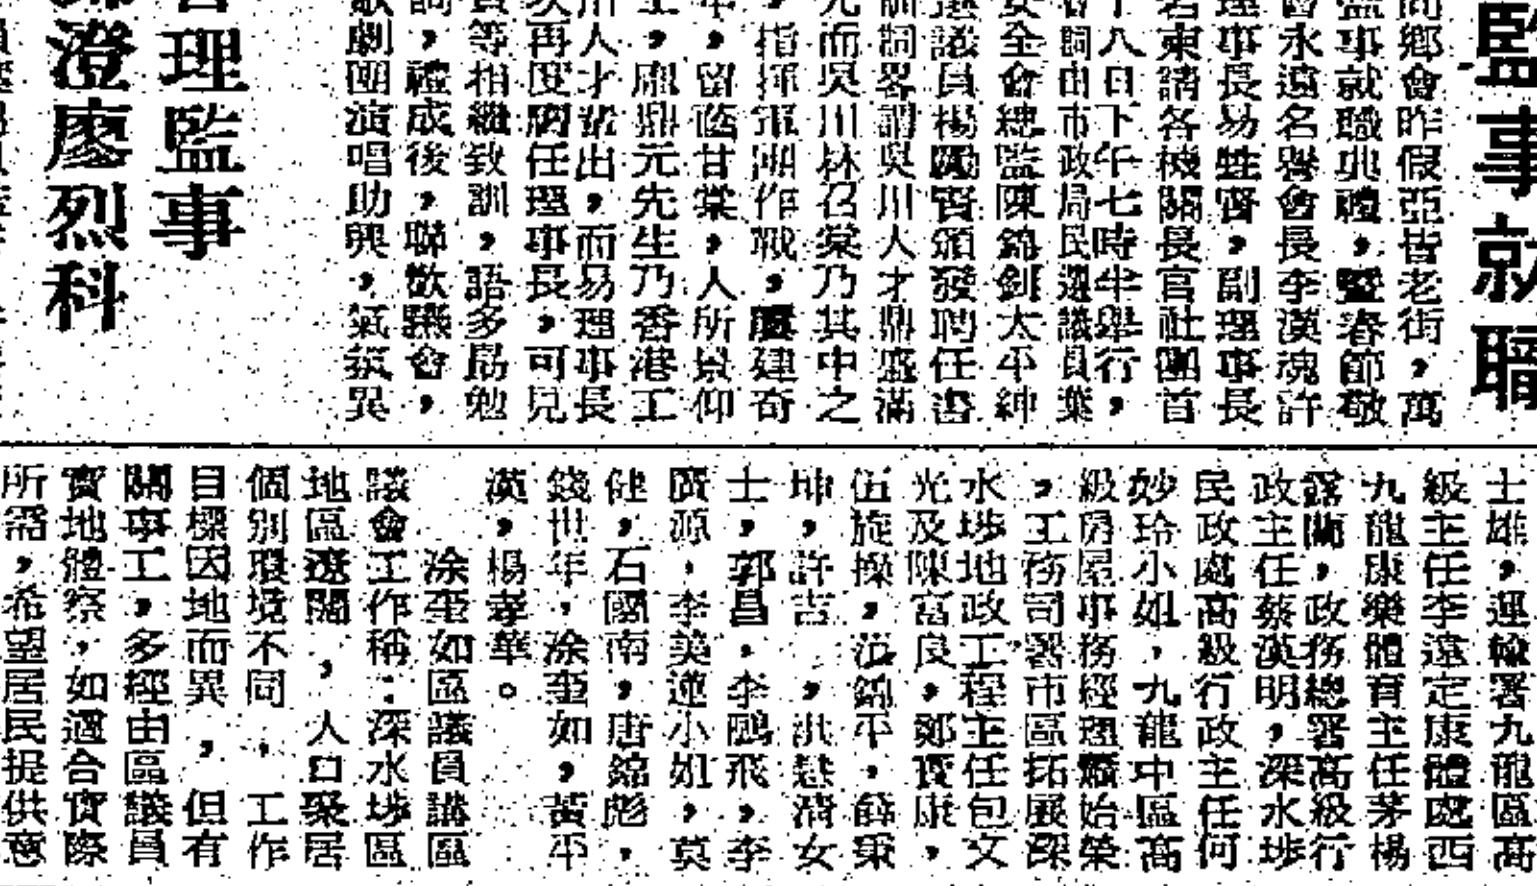 監事就職
同鄉會昨假亞皆老街,萬
監事就職典禮,暨春節敬
會永遠名譽會長李漢魂許
理事長易甡齊,副理事長
名柬請各機關長官社團首
十八日下午七時半舉行,
詞由市政局民選議員葉
安全會總監陳錦釗太平紳
選議員楊勵賢頒發聘任書
訓詞畧謂吳川人才鼎盛滿
元而吳川林召棠乃其中之
,指揮軍團作戰,屢建奇
年,留蔭甘棠,人所景仰
,龐鼎元先生乃香港工
川人才輩出,而易理事長
次再度膺任理事長,可見
員等相繼致訓,語多勗勉
詞,禮成後,聯歡讌會,
歌劇團演唱助興,氣氛異
理監事
澄廖烈科
士雄,運輸署九龍區高
級主任李遠定康體處西
九龍康樂體育主任茅楊
露蘭,政務總署高級行
政主任蔡漢明,深水埗
民政處高級行政主任何
妙玲小姐,九龍中區高
級房屋事務經理鄺始榮
,工務司署市區拓展深
水埗地政工程主任包文
光及陳富良,鄭寶康,
伍旋操,范錦平,薛秉
坤,許吉,洪慧清女
士,郭昌,李鷗飛,李
廣源,李美蓮小姐,莫
健,石國南,唐錦彪,
錢世年,涂荃如,黃平
漢,楊孝華。
涂荃如區議員講區
議會工作稱:深水埗區
地區遼闊,人口聚居
個別環境不同,工作
目標因地而異,但有
關事工,多經由區議員
實地體察,如適合實際
所需,希望居民提供意